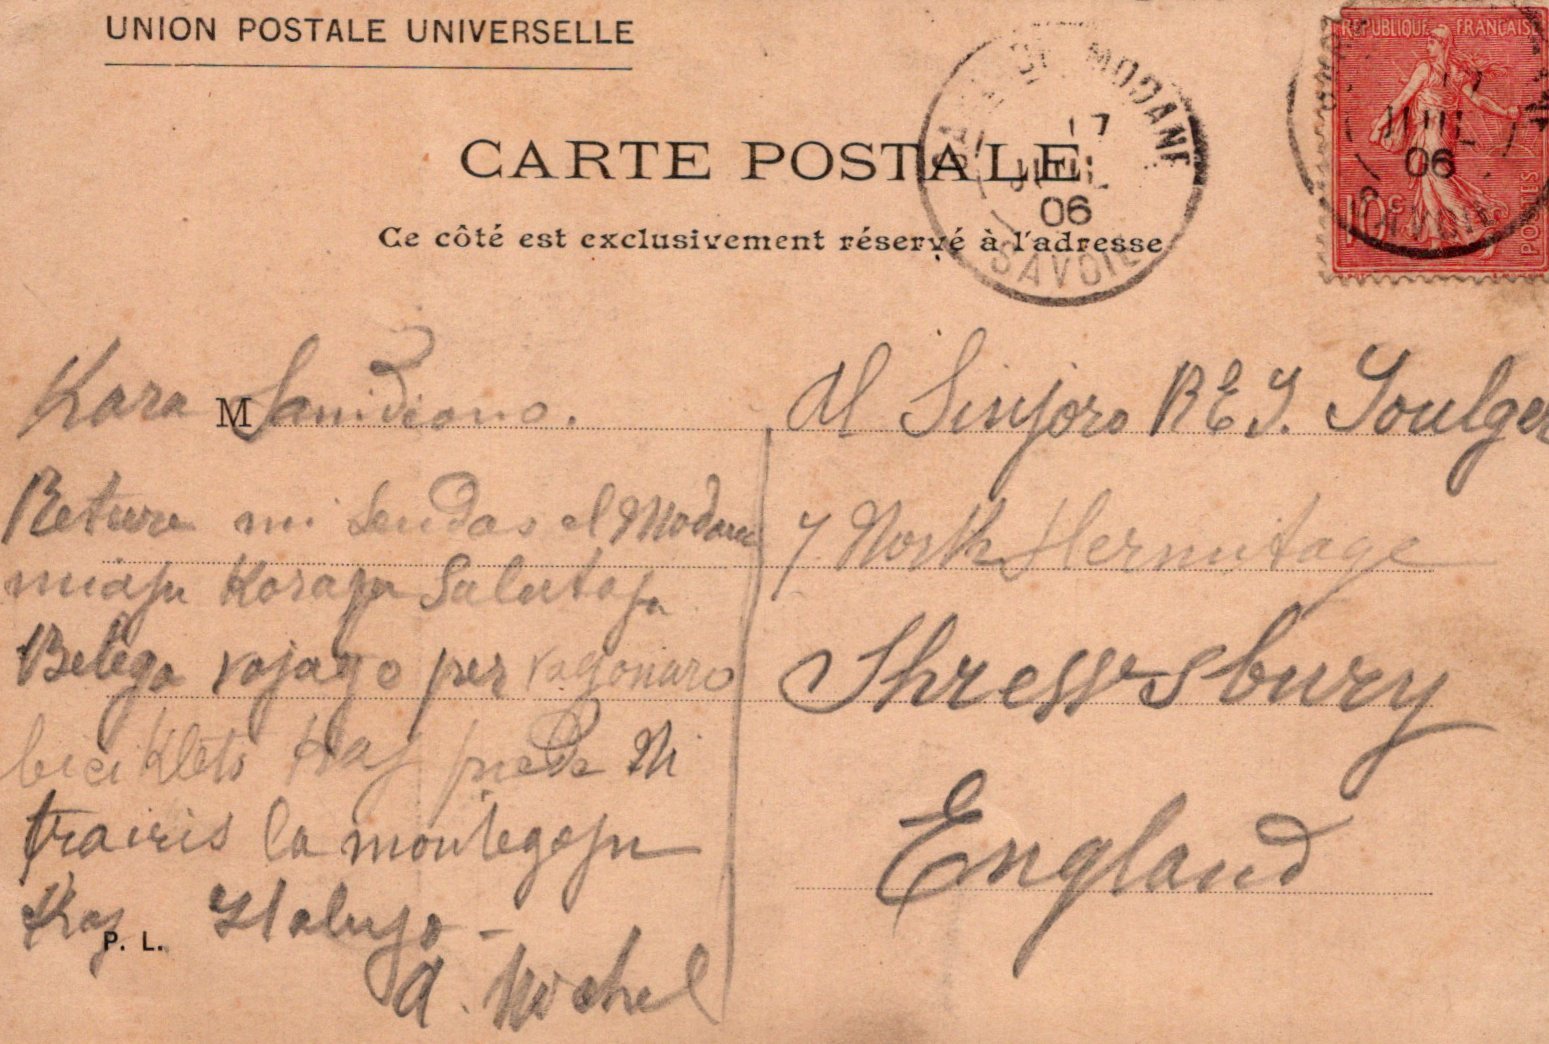 UNION POSTALE UNIVERSELLE
CARTE POSTALE
Ce côté est exclusivement réservé à l'adresse
MODANE
17
JUIL
06
SAVOIE
RÉPUBLIQUE FRANÇAISE
17
JUIL
06
10c
POSTES
Kara Samideano.
M
Reture mi sendas el Modane
miajn Korajn Salutojn
Belega vojago per vagonaro
biciklets Kaj piede Mi
trairis la montegojn
Kaj Italujo -
A. Michel
P. L.
Al Sinjoro R E J. Soulger
7 North Hermitage
Shrewsbury
England